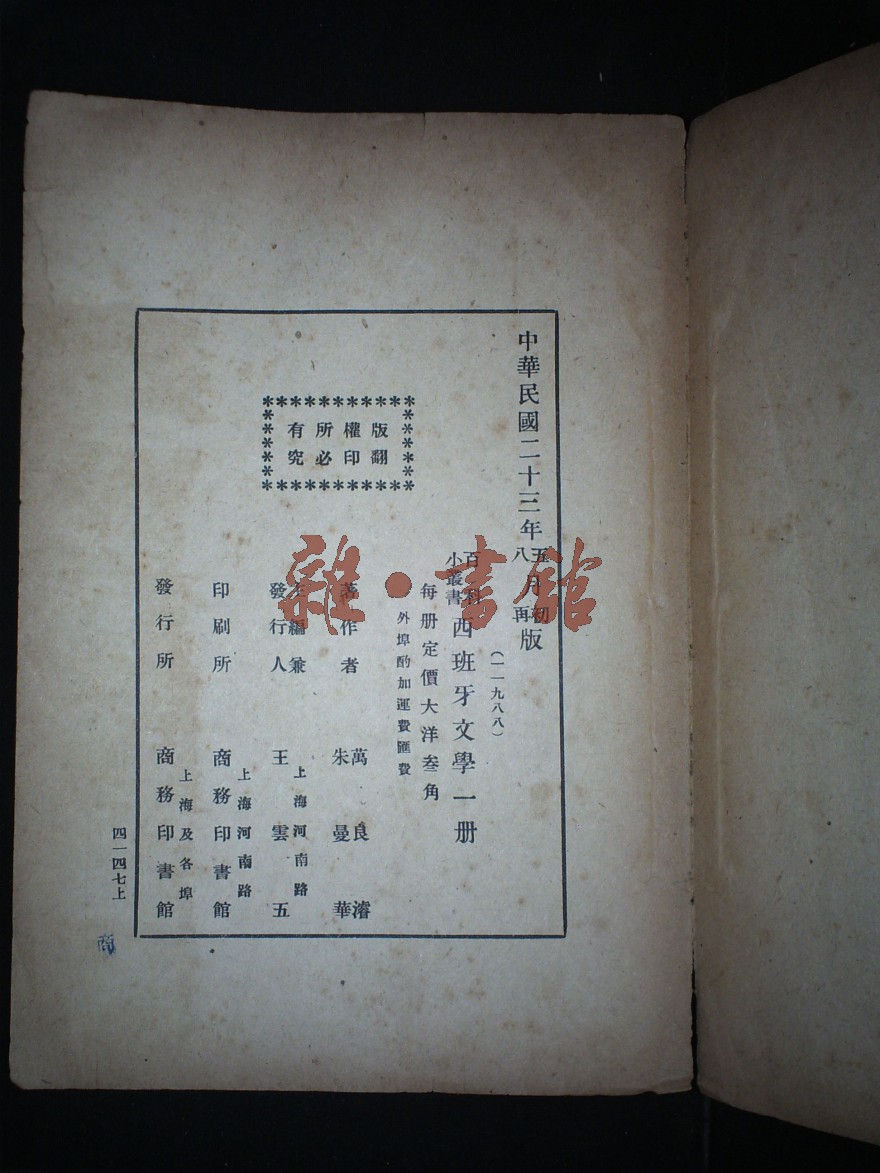 中華民國二十三年五月初版
八再
(一一九八八)
百科
小叢書
西班牙文學一册
每册定價大洋叁角
外埠酌加運費匯費
著作者
萬良濬
朱曼華
主編兼
發行人
上海河南路
王雲五
印刷所
上海河南路
商務印書館
發行所
上海及各埠
商務印書館
版權所有
翻印必究
四一四七上
商
雜·書館